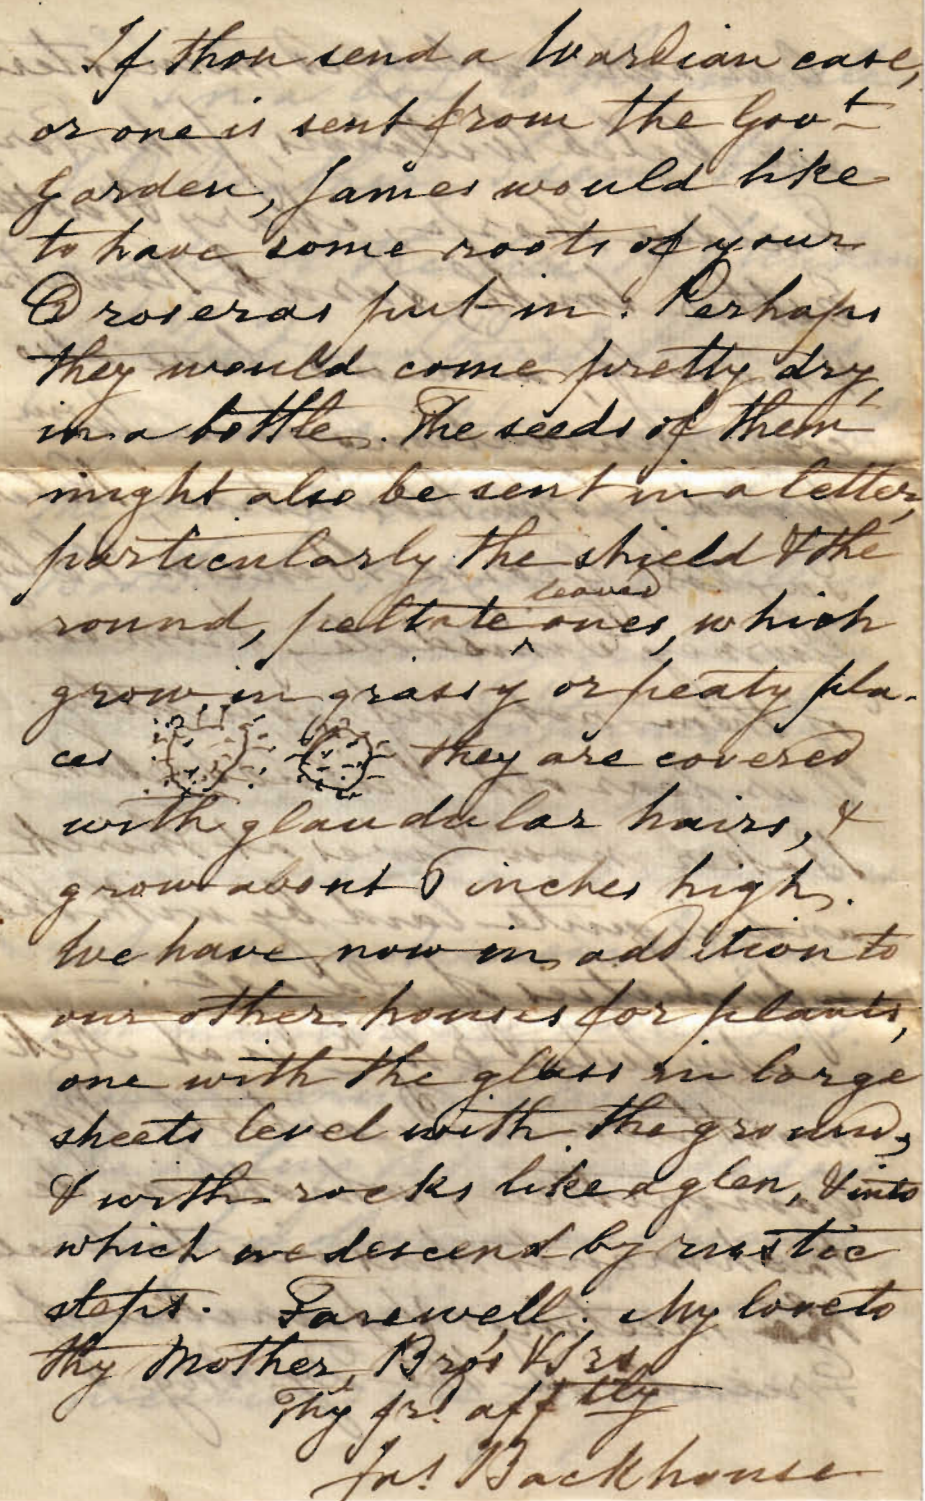 If thou send a Wardian case,
or one is sent from the Govt
Garden, James would like
to have some roots of your
Droseras put in: Perhaps
they would come pretty dry,
in a bottle. The seeds of them
might also be sent in a letter,
particularly the shield & the
round, peltate leaved ones, which
grow in grassy or peaty pla-
ces they are covered
with glandular hairs, &
grow about 6 inches high.
We have now in addition to
our other houses for plants,
one with the glass in large
sheets level with the ground,
& with rocks like a glen, & into
which we descend by rustic
steps. Farewell. My love to
thy Mother, Bros & Srs
Thy frd afftly
Jas Backhouse